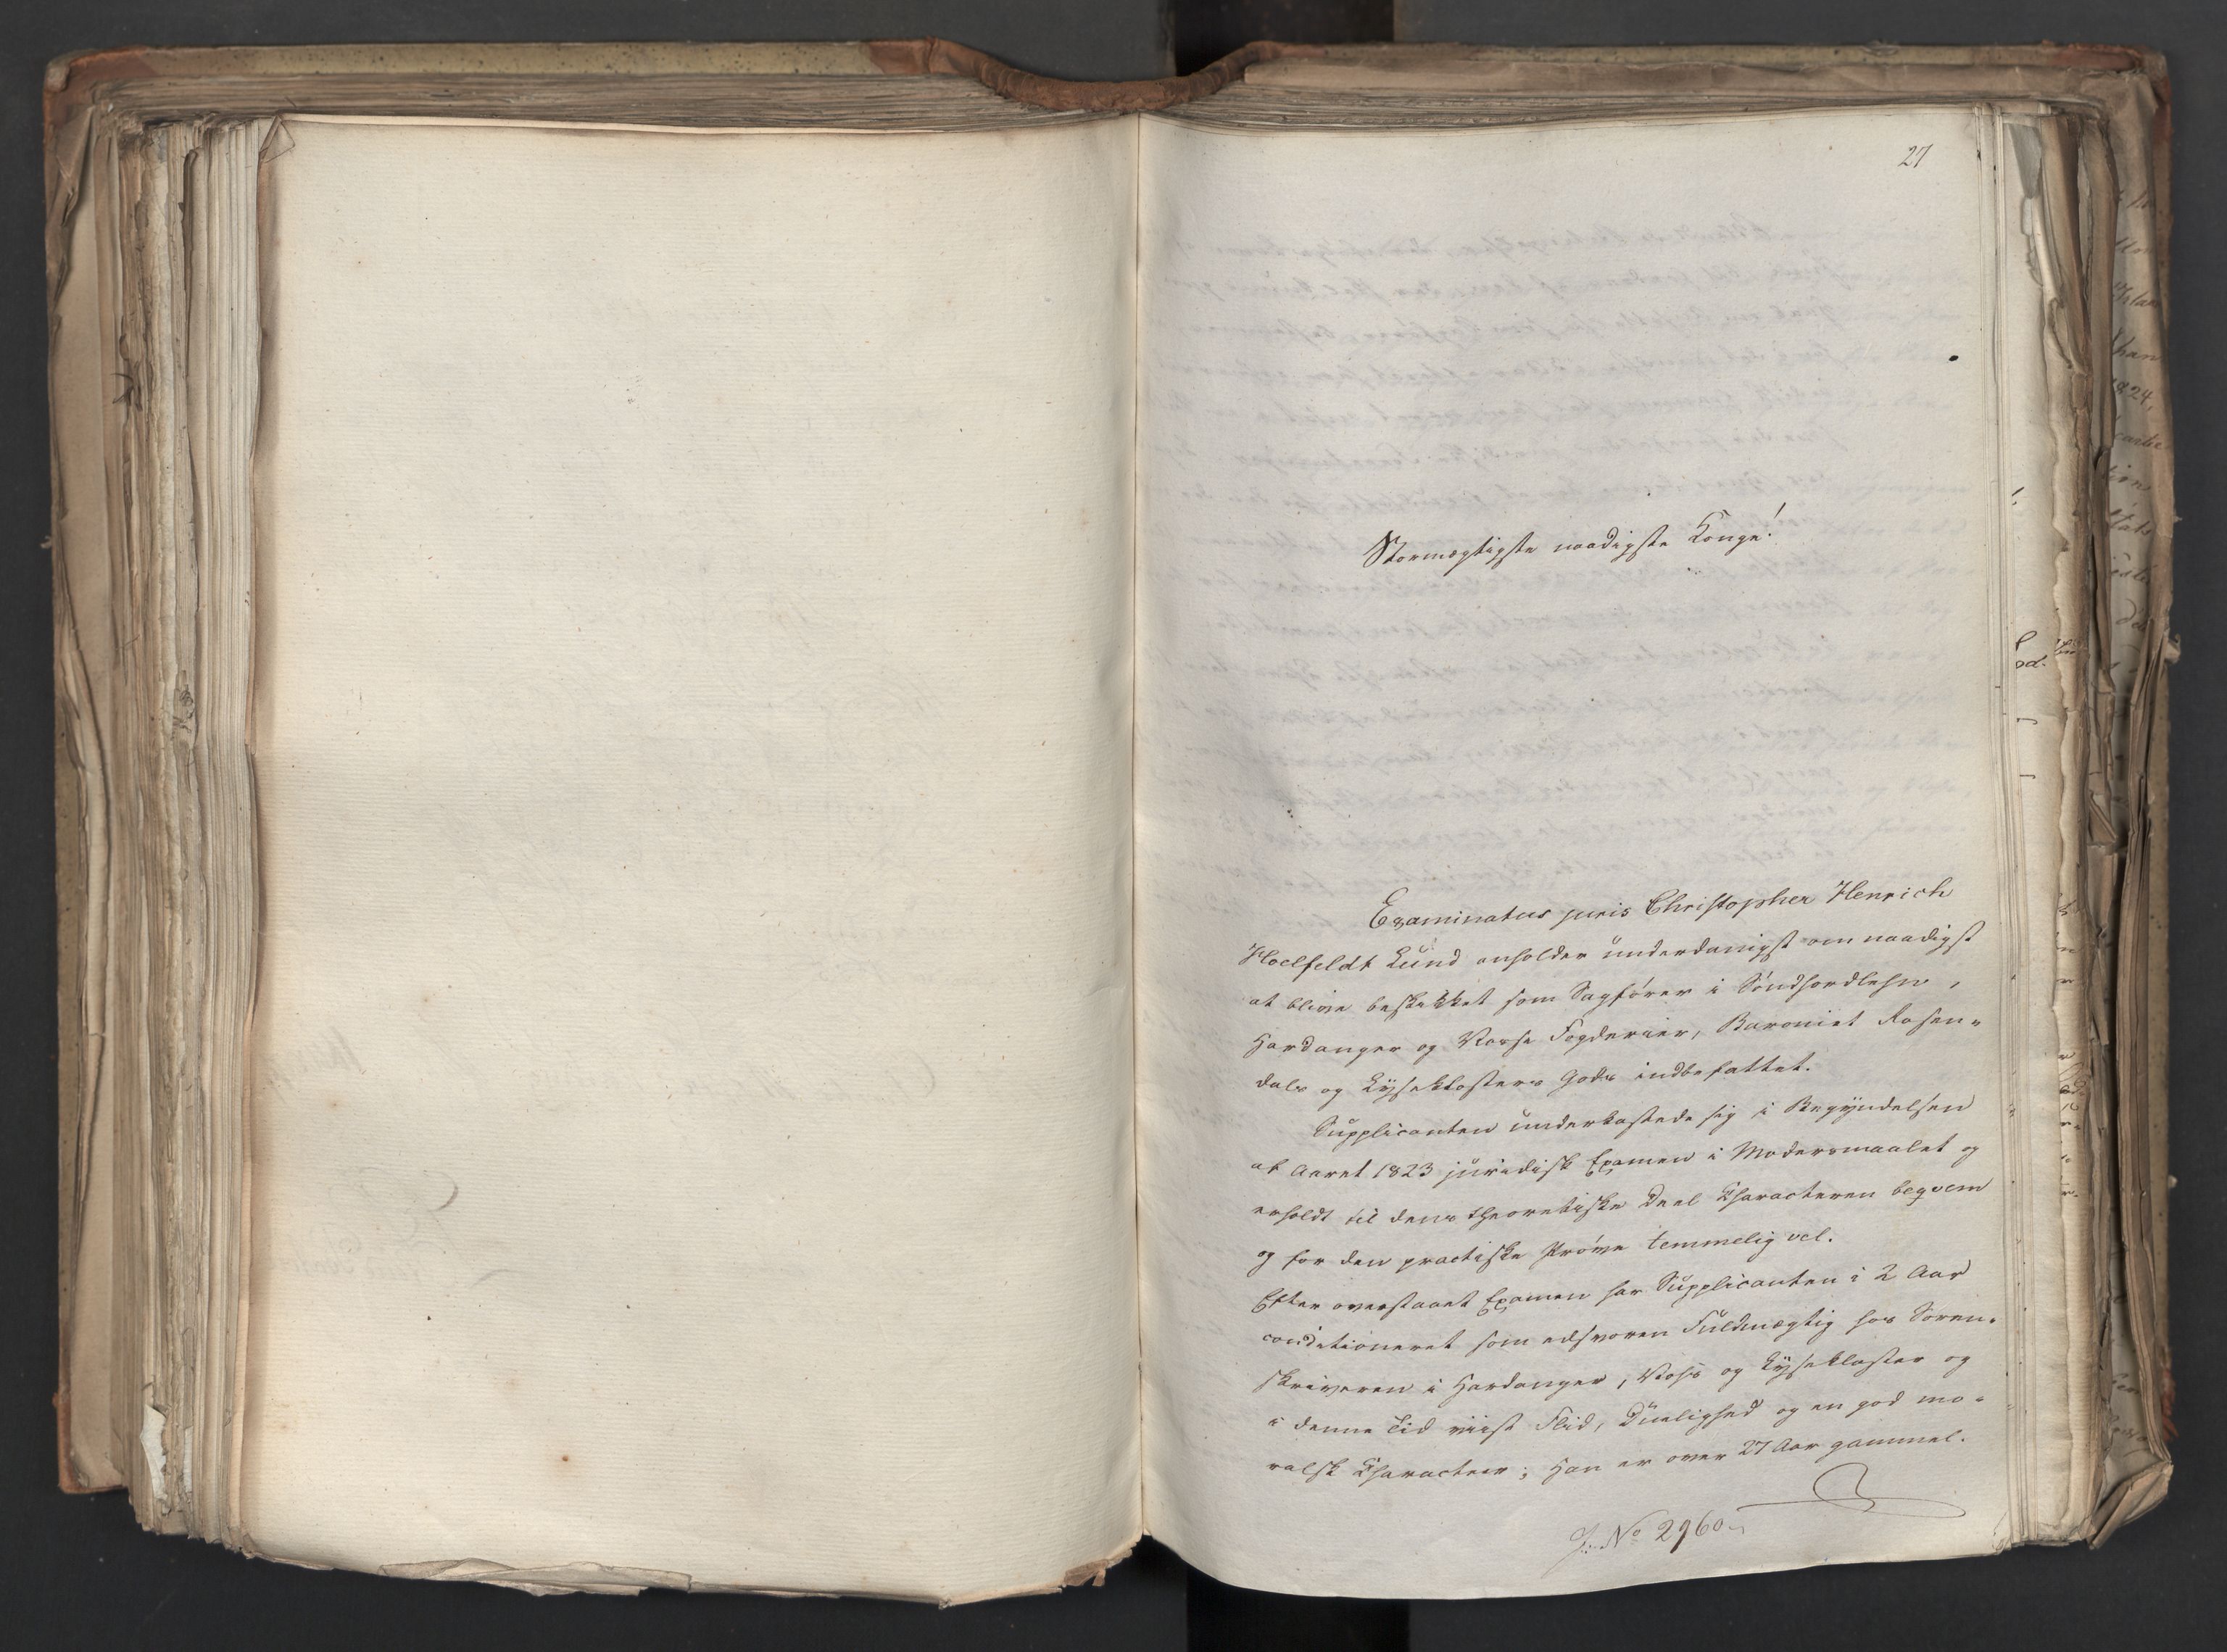 27
Stormægtigste naadigste Konge!
Examinatus juris Christopher Henrich
Hoelfeldt Lund anholder underdanigst om naadigst
at blive beskikket som Sagfører i Søndhordlehn,
Hardanger og Vosse Fogderier, Baroniet Rosen-
dals og Lyseklosters Gods indbefattet.
Supplicanten underkastede sig i Begyndelsen
af Aaret 1823 juridisk Examen i Modersmaalet og
erholdt til dens theoretiske Deel Characteren beqvem
og for den practiske Prøve temmelig vel.
Efter overstaaet Examen har Supplicanten i 2 Aar
conditioneret som edsvoren Fuldmægtig hos Soren-
skriveren i Hardanger, Voss og Lysekloster og
i denne Tid viist Flid, Duelighed og en god mo-
ralsk Characteer; Han er over 27 Aar gammel.
J. No 2960